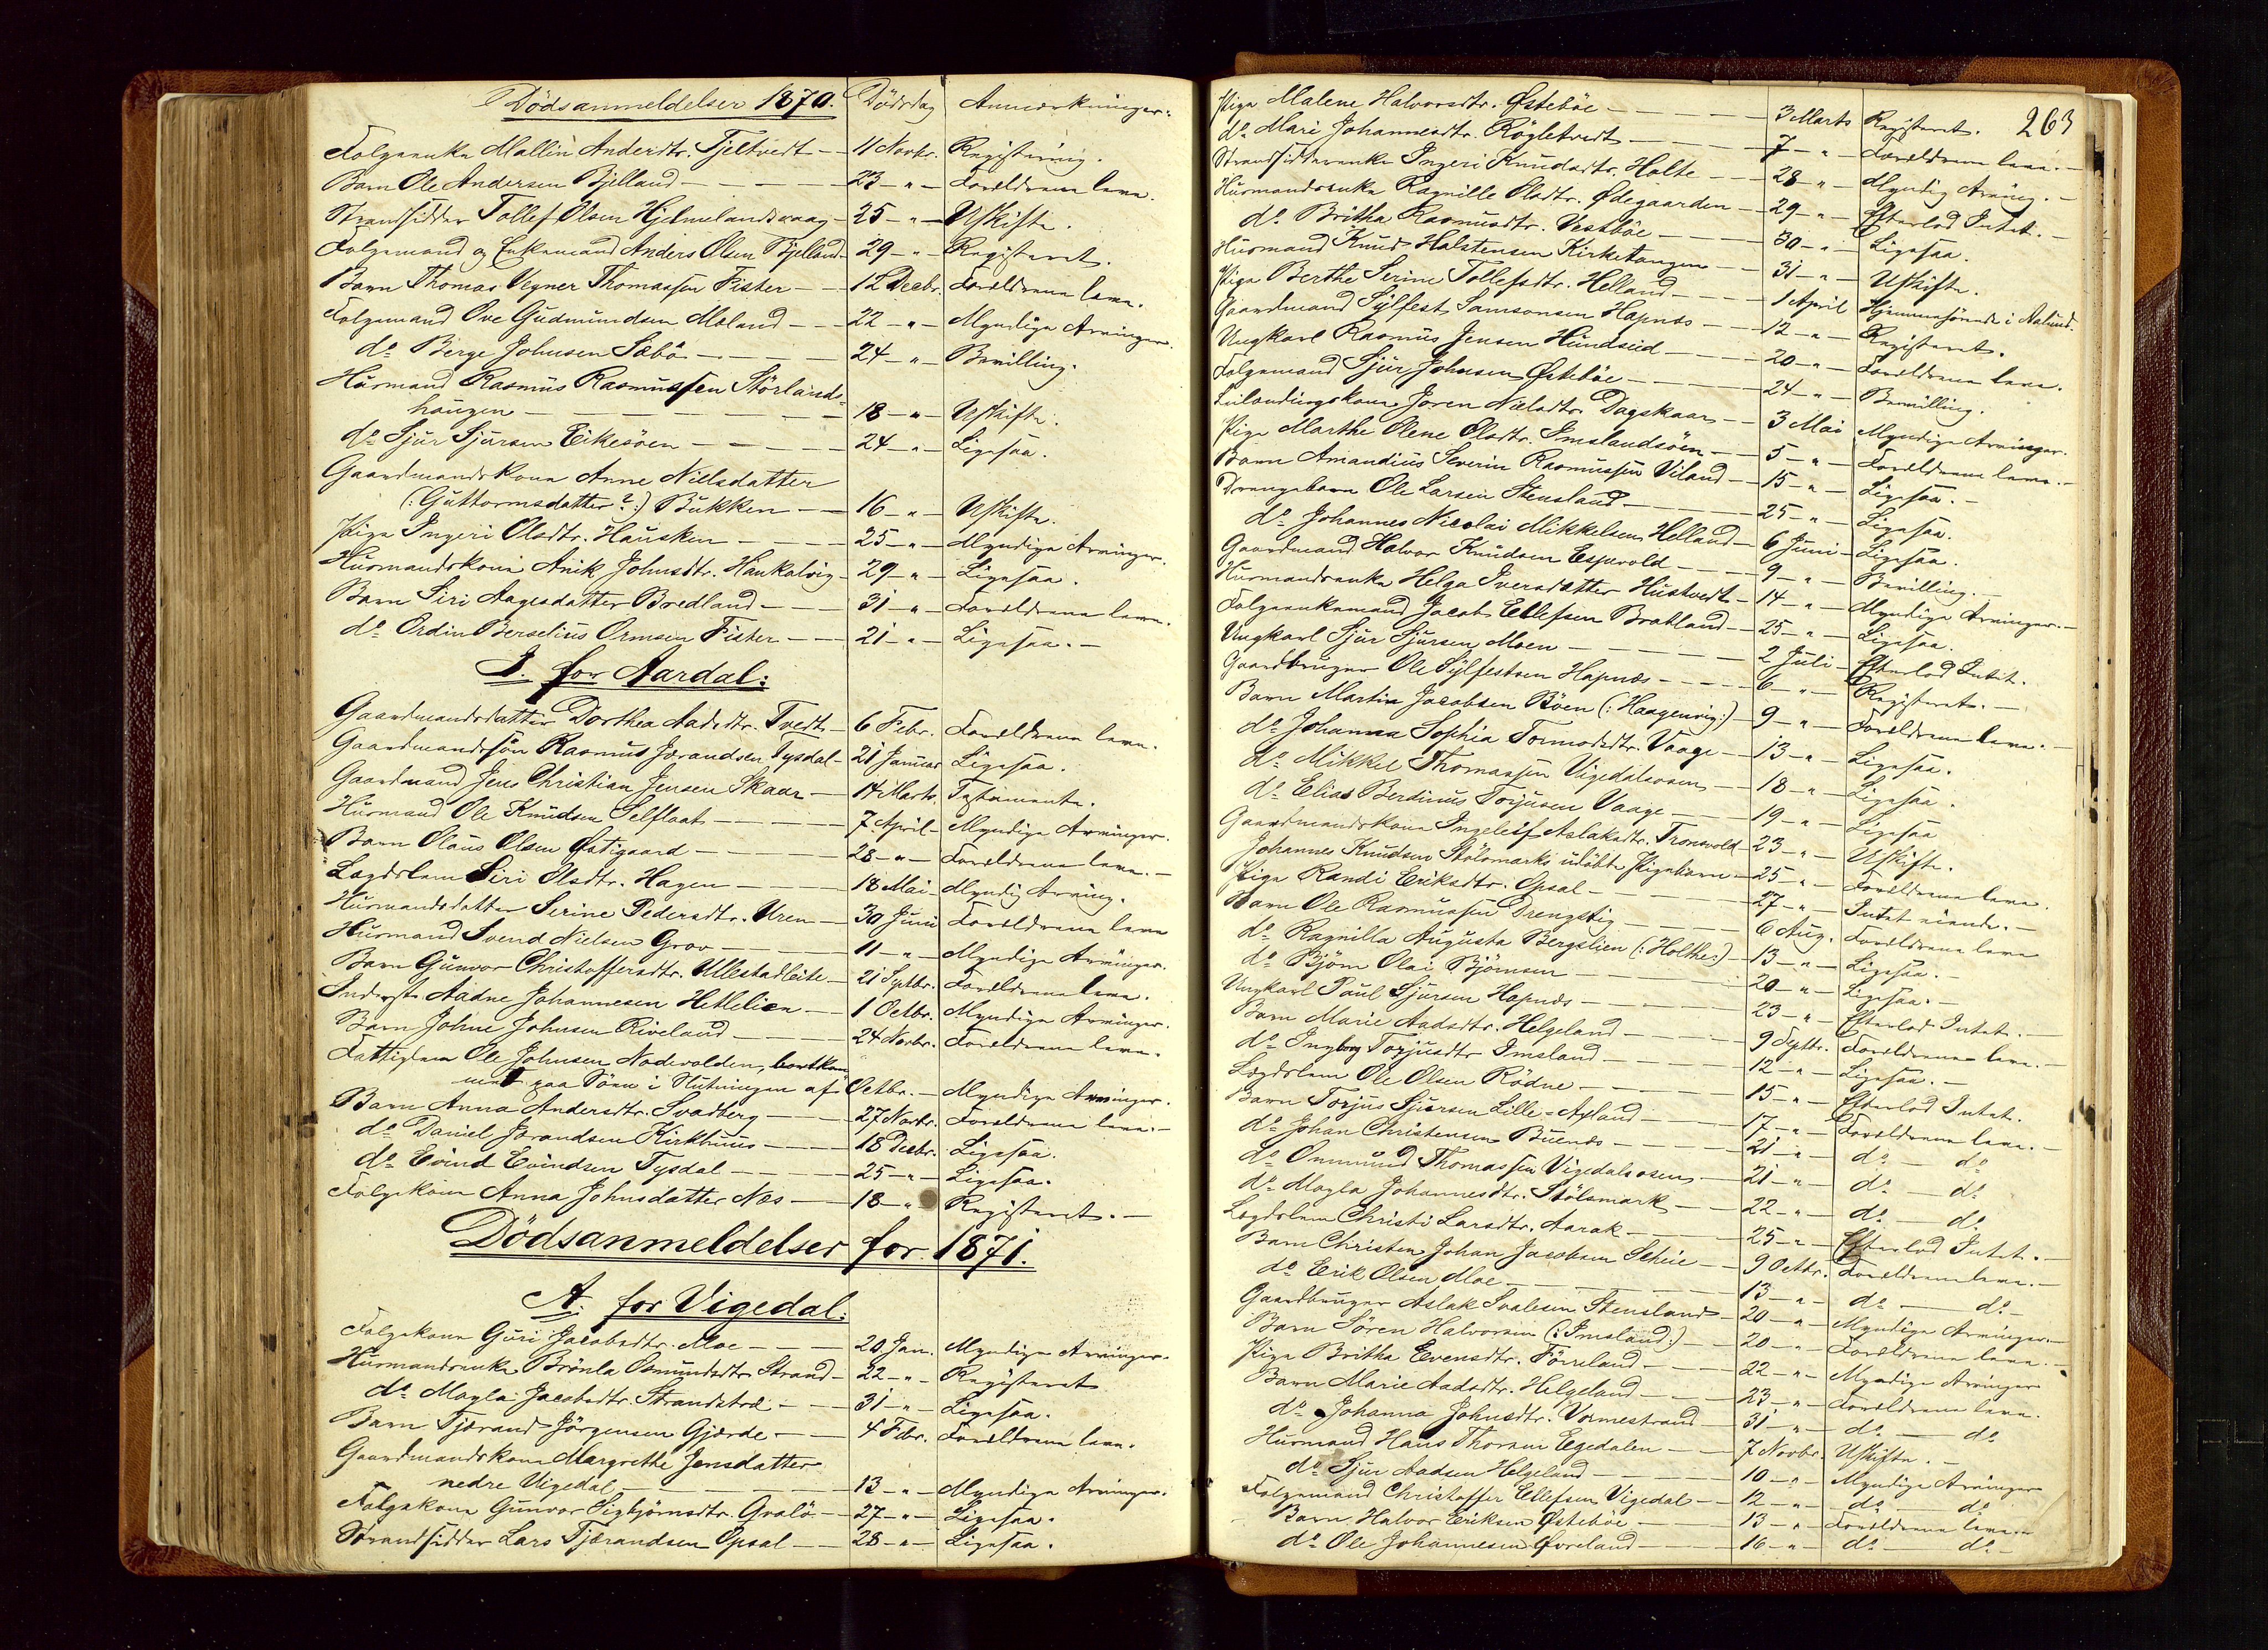 Dödsanmeldelser 1870. Dödsdag Anmærkninger.
Folgeenke Mallin Andersdtr. Tjeltvedt — 11 Novbr. Registering.
Barn Ole Andersen Bjelland — 23 — " — Forældrene leve.
Strandsidder Tollef Olsen Hjelmelandsvaag — 25 — " — Udskifte.
Folgemand og Enkemand Anders Olsen Bjelland — 29 — " — Registeret.
Barn Thomas Vegner Thomassen Fister — 12 Decbr. Forældrene leve.
Folgemand Ove Gudmundsen Meland — 22 — " — Myndige Arvinger.
do Berge Johnsen Sæbö — 24 — " — Bevilling.
Husmand Rasmus Rasmussen Störlands-
haugen — 18 — " — Udskifte.
do Sjur Sjursen Eikesöen — 24 — " — Ligesaa.
Gaardmandskone Anne Nielsdatter
(: Guttormsdatter ? :) Bukken — 16 — " — Udskifte.
Pige Ingeri Olsdtr. Hausken — 25 — " — Myndige Arvinger.
Husmandskone Anik Johnsdtr. Hankalvig — 29 — " — Ligesaa.
Barn Siri Aagesdatter Bredland — 31 — " — Forældrene leve.
do Ordin Berselius Ormsen Fister — 21 — " — Ligesaa. —
I. for Aardal:
Gaardmandsdatter Dorthea Aadsdtr. Tvedt — 6 Febr. Forældrene leve.
Gaardmandssön Rasmus Jörandsen Tysdal — 21 Januar Ligesaa.
Gaardmand Jens Christian Jensen Skaar — 14 Marts. Testamente.
Husmand Ole Knudsen Selflaat — 7 April — Myndige Arvinger.
Barn Olaus Olsen Östigaard — 28 — " — Forældrene leve. —
Lægdslem Siri Olsdtr. Hagen — 18 Mai — Myndig Arving.
Husmandsdatter Serine Pedersdtr. Uren — 30 Juni Forældrene leve
Husmand Svend Nielsen Grov — 11 — " — Myndige Arvinger.
Barn Gunvor Christoffersdtr. Ullestadleite — 21 Septbr. Forældrene leve.
Inderste Aadne Johannesen Hetlelien — 1 Octbr. Myndige Arvinger.
Barn Johne Johnsen Riveland — 24 Novbr. Forældrene leve.
Fattiglem Ole Johnsen Nodevolden, bortkom
met paa Söen i Slutningen af Octbr. — Myndige Arvinger.
Barn Anna Andersdtr. Svadberg — 27 Novbr. Forældrene leve. —
do Daniel Jörandsen Kirkhuus — 18 Decbr. Ligesaa.
do Evind Evindsen Tysdal — 25 — " — Ligesaa.
Folgekone Anna Johnsdatter Næs — 18 — " Registeret. —
Dödsanmeldelser for 1871.
A. for Vigedal:
Folgekone Guri Jacobsdtr. Moe — 20 Jan. Myndige Arvinger.
Husmandsenke Brönla Osmundsdtr. Strand — 22 — " — Registeret
do Magla Jacobsdtr. Strandstræ — 31 — " — Ligesaa.
Barn Tjerand Jörgensen Gjerde — 4 Febr. Forældrene leve.
Gaardmandskone Margrethe Jensdatter
nedre Vigedal — 13 — " — Myndige Arvinger.
Folgekone Gunvor Sigbjörnsdtr. Qvalö — 27 — " — Ligesaa.
Strandsidder Lars Tjerandsen Opsal — 28 — " — Ligesaa.
263
Pige Malene Halvorsdtr. Östeböe — 3 Marts Registeret.
do Mari Johannesdtr. Rögletvedt — 7 — " — Forældrene leve. —
Strandsidderenke Ingeri Knudsdtr. Holte — 28 — " — Myndig Arving. —
Husmandsenke Ragnille Olsdtr. Ödegaarden — 29 — " — Efterlod Intet. —
do Britha Rasmusdtr. Vestböe — 30 — " — Ligesaa.
Husmand Knud Halstensen Kirketangen — 31 — " — Udskifte.
Pige Berthe Serine Tollefsdtr. Helland — 1 April Hjemmehörende i Nalund.
Gaardmand Sylfest Samsonsen Hapnæs — 12 — " — Registeret.
Ungkarl Rasmus Jensen Hundseid — 20 — " — Forældrene leve.
Folgemand Sjur Johnsen Östeböe — 24 — " — Bevilling.
Leilændingskone Joren Nielsdtr. Dagskaar — 3 Mai Myndige Arvinger.
Pige Marthe Olene Olsdtr. Imslandsöen — 5 — " — Forældrene leve. —
Barn Amandius Severin Rasmussen Viland — 15 — " — Ligesaa. —
Drengebarn Ole Larsen Stensland — 25 — " — Ligesaa.
do Johannes Nicolai Mikkelsen Helland — 6 Juni — Ligesaa.
Gaardmand Halvor Knudsen Espevold — 9 — " — Bevilling. —
Husmandsenke Helga Iversdatter Hustvedt — 14 — " — Myndige Arvinger. —
Folgeenkemand Jacob Ellefsen Bratland — 25 — " — Ligesaa.
Ungkarl Sjur Sjursen Moen — 2 Juli — Efterlod Intet.
Gaardbruger Ole Sylfestsen Hapnæs — 6 — " — Registeret. —
Barn Martin Jacobsen Böen (: Haagenvig :) — 9 — " — Forældrene leve. —
do Johanna Sophia Tormodsdtr. Vaage — 13 — " — Ligesaa.
do Mikkel Thomassen Vigedalsosen — 18 — " — Ligesaa.
do Elias Berdinus Torjusen Vaage — 19 — " — Ligesaa
Gaardmandskone Ingeleif Aslaksdtr. Tronsvold — 23 — " — Udskifte.
Johannes Knudsen Stölsmarks udöbte Pigebarn — 25 — " — Forældrene leve.
Pige Randi Eriksdtr. Opsal — 27 — " — Intet eiende. —
Barn Ole Rasmussen Drengstig — 6 Aug. Forældrene leve
do Ragnilla Augusta Bergslien (: Holthe :) — 13 — " — Ligesaa. —
do Björn Olai Björnsen — 20 — " — Ligesaa. —
Ungkarl Paul Sjursen Hapnæs — 23 — " — Efterlod Intet. —
Barn Marie Aadsdtr. Helgeland — 9 Septbr. Forældrene leve. —
do Ingborg Torjusdtr Imsland — 12 — " — Ligesaa. —
Lægdslem Ole Olsen Rödne — 15 — " — Efterlod Intet.
Barn Torjus Sjursen Lille-Axland — 17 — " — Forældrene leve. —
do Johan Christensen Buenæs — 21 — " — do — do
do Ommund Thomassen Vigedalsosen — 21 — " — do — do
do Magla Johannesdtr. Stölsmark — 22 — " — do — do
Lægdslem Christi Larsdtr. Aarak — 25 — " — Efterlod Intet. —
Barn Christen Johan Jacobsen Scheie — 9 Octbr. Forældrene leve. —
do Erik Olsen Moe — 13 — " — do — do —
Gaardbruger Aslak Svalesen Stensland — 20 — " — Myndige Arvinger. —
Barn Sören Halvorsen (: Imsland :) — 20 — " Forældrene leve. —
Pige Britha Evensdtr. Förreland — 22 — " — Myndige Arvinger
Barn Marie Aadsdtr. Helgeland — 23 — " — Forældrene leve.
do Johanna Johnsdtr. Vormestrand — 31 — " — do — do
Husmand Hans Thorsen Egedalen — 7 Novbr. Udskifte. —
do Sjur Aadsen Helgeland — 10 — " — Myndige Arvinger
Folgemand Christoffer Ellefsen Vigedal — 12 — " — do do
Barn Halvor Eriksen Östeböe — 13 — " — Forældrene leve. —
do Ole Johannesen Övreland — 16 — " — do — do —